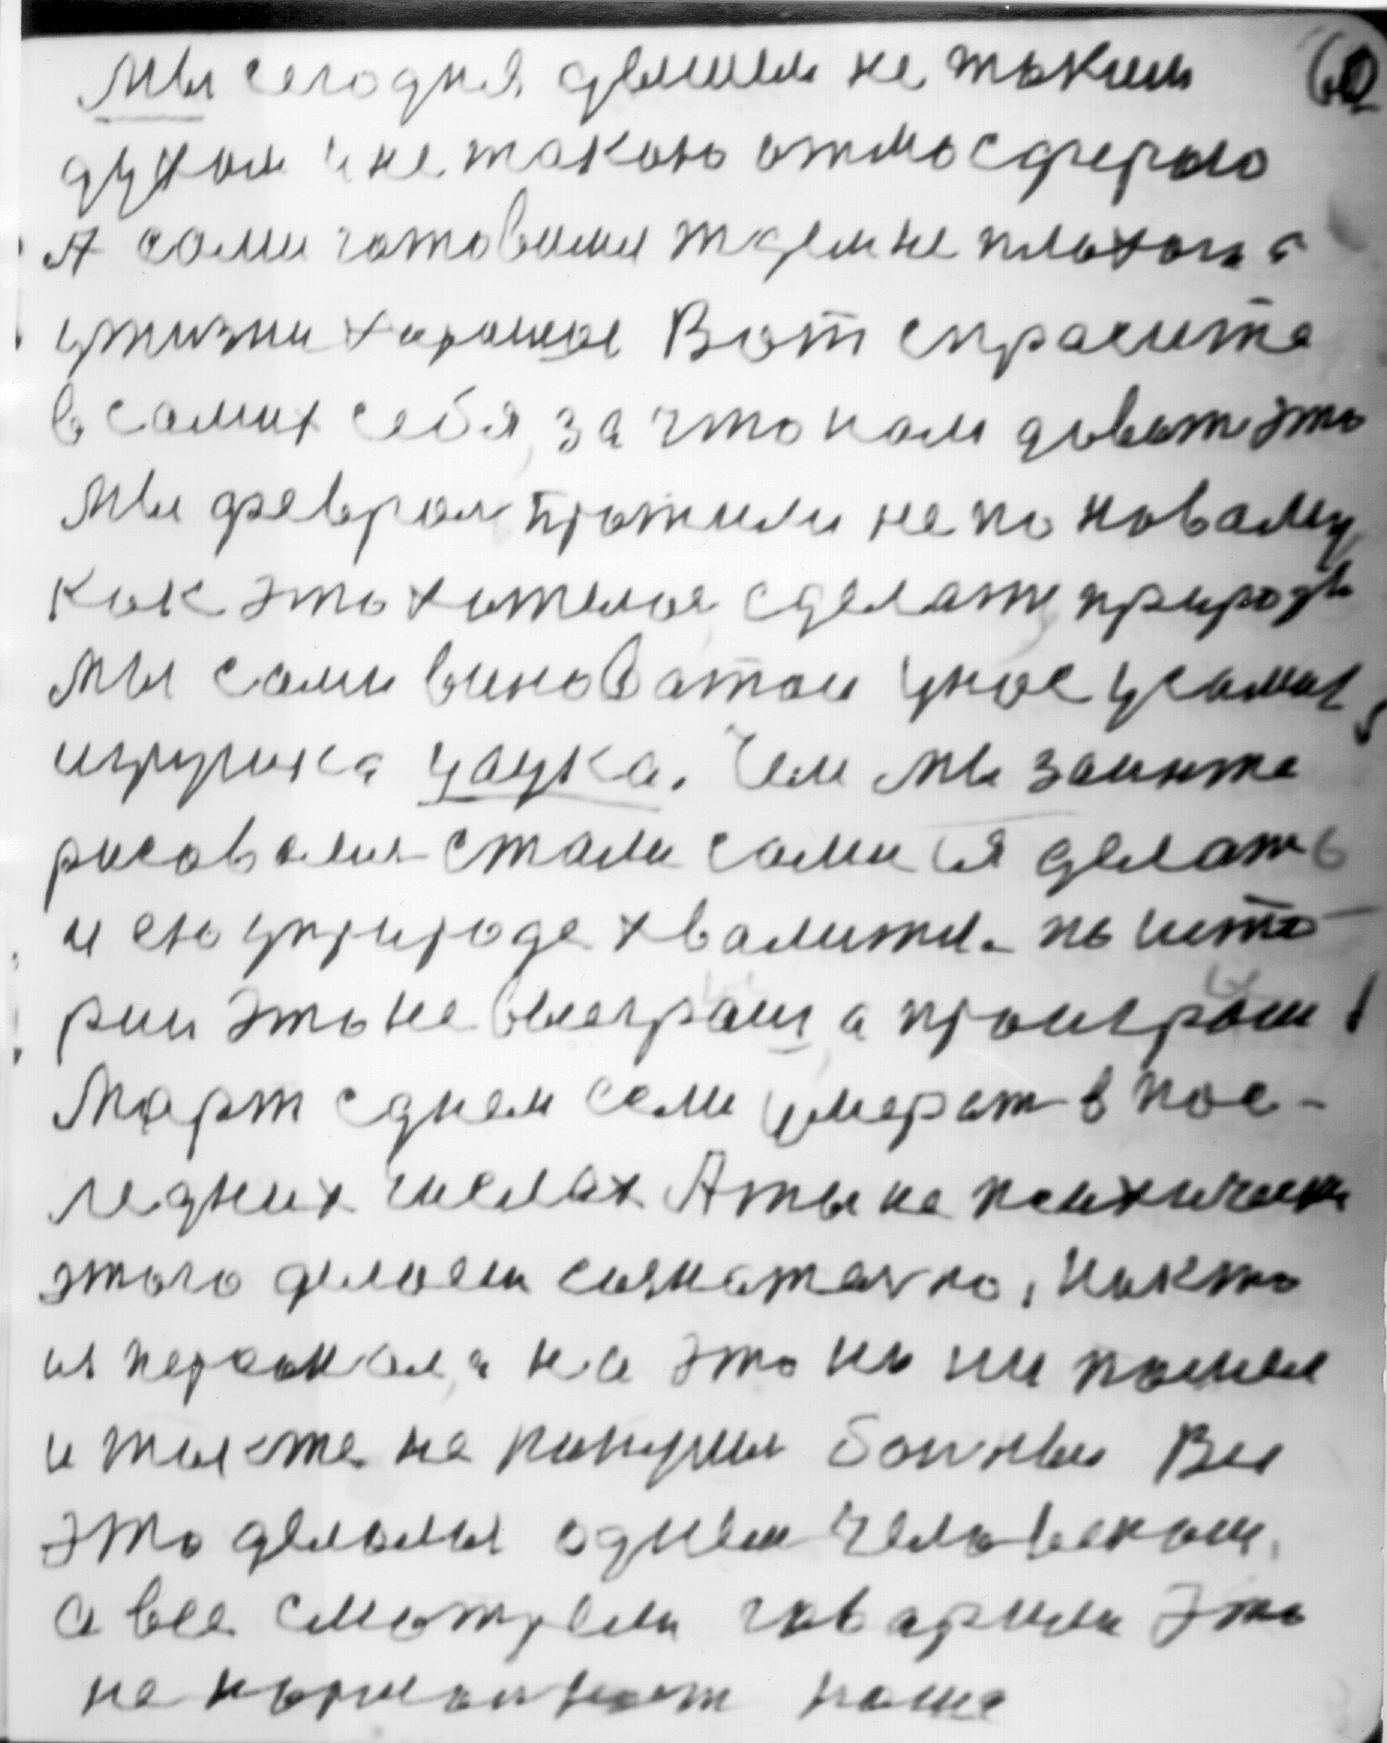 Мы сегодня дышем не таким 60
духом и не такою атмосферою
А сами готовыми ждем не плохого а
у жизни хорошое Вот спрасите
в самих себя, за что нам давать это
Мы феврал прожили не по новаму
как это хотелое сделать природе
Мы сами виноватои у нас у самих
игрушка наука. Чем мы заинте
рисовалис стали сами ея делать
и ею у природе хвалится. по исто
рии это не выеграш, а проиграш!
Март с днем семи умерат в пос-
ледних числах А ты не психически
этого делаеш сознательно, никто
из персонала на это ни пошел
и также не нормы больные Вы
это делали одним человеком,
а все сматрели говарили это
не нормальност наша